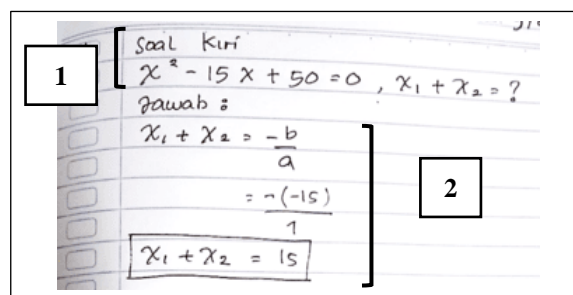 Soal Kiri
x² - 15x + 50 = 0 , x₁ + x₂ = ?
Jawab :
x₁ + x₂ = -b
a
= -(-15)
1
x₁ + x₂ = 15
1
2